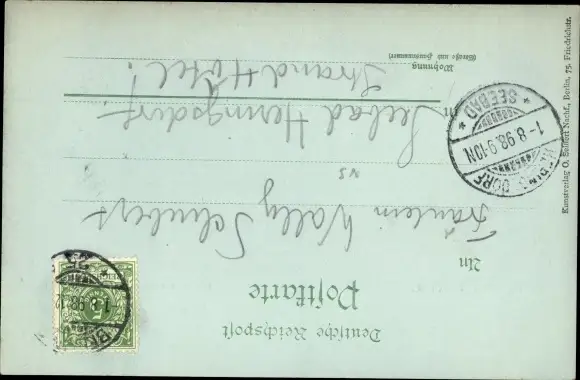 Deutsche Reichspost
Postkarte
An
Fräulein Wally Schubert
in Seebad Heringsdorf.
Strand Hôtel!
Wohnung
(Straße und Hausnummer)
HERINGSDORF
1-8.98.9-10N
* SEEBAD *
1.8.98.
Kunstverlag O. Seiffert Nachf., Berlin, 75. Friedrichstr.